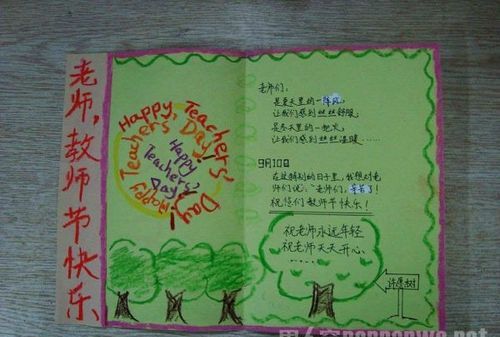 老师,教师节快乐
Happy Teachers' Day!
Happy Teachers' Day!
Happy Teachers' Day!
老师们:
是夏天里的一阵风,
让我们感到丝丝舒服,
是冬天里的一把火,
让我们感到丝丝温暖……
9月10日
在这特别的日子里,我想对老
师们说:"老师们,辛苦了!
祝您们教师节快乐!
祝老师永远年轻
祝老师天天开心
……
许愿树